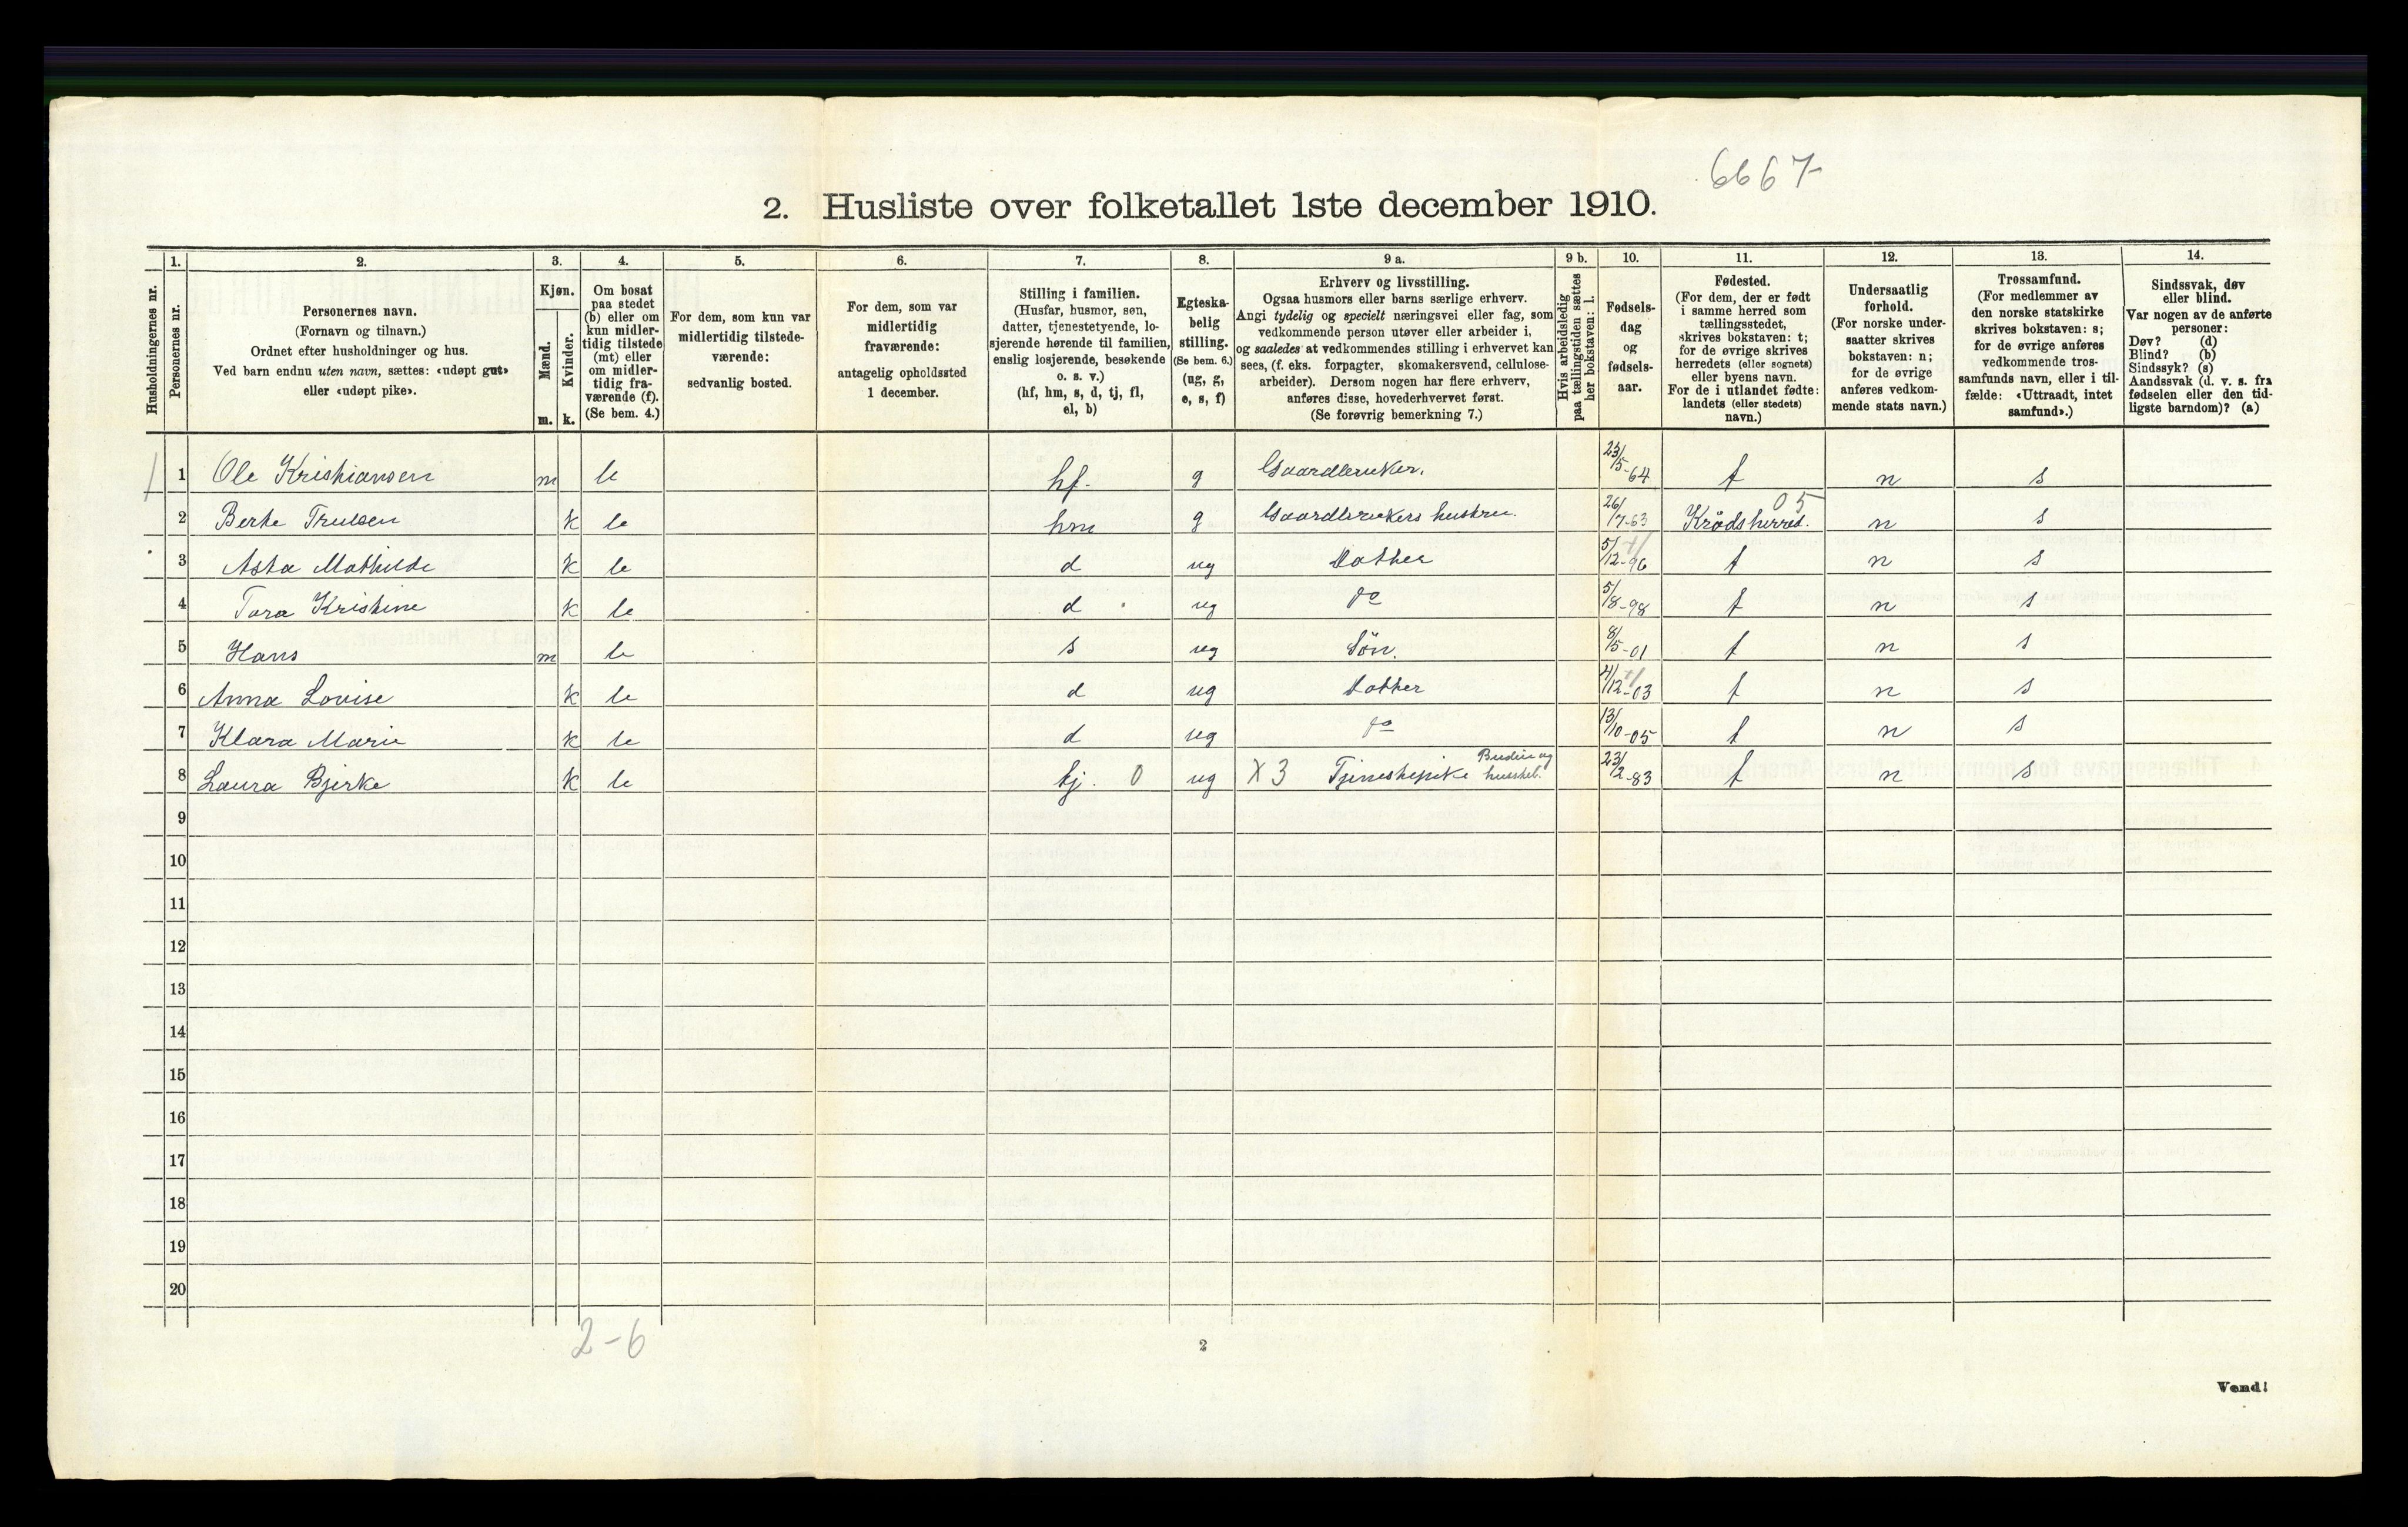 6667
2. Husliste over folketallet 1ste december 1910.
Husholdningernes nr.
1.
Personernes nr.
2.
Personernes navn.
(Fornavn og tilnavn.)
Ordnet efter husholdninger og hus.
Ved barn endnu uten navn, sættes: «udøpt gut»
eller «udøpt pike».
3.
Kjøn.
Mænd.
Kvinder.
m. k.
4.
Om bosat
paa stedet
(b) eller om
kun midler-
tidig tilstede
(mt) eller
om midler-
tidig fra-
værende (f).
(Se bem. 4.)
5.
For dem, som kun var
midlertidig tilstede-
værende:
sedvanlig bosted.
6.
For dem, som var
midlertidig
fraværende:
antagelig opholdssted
1 december.
7.
Stilling i familien.
(Husfar, husmor, søn,
datter, tjenestetyende, lo-
sjerende hørende til familien,
enslig losjerende, besøkende
o. s. v.)
(hf, hm, s, d, tj, fl,
el, b)
8.
Egteska-
belig
stilling.
(Se bem. 6.)
(ug, g,
e, s, f)
9 a.
Erhverv og livsstilling.
Ogsaa husmors eller barns særlige erhverv.
Angi tydelig og specielt næringsvei eller fag, som
vedkommende person utøver eller arbeider i,
og saaledes at vedkommendes stilling i erhvervet kan
sees, (f. eks. forpagter, skomakersvend, cellulose-
arbeider). Dersom nogen har flere erhverv,
anføres disse, hovederhvervet først.
(Se forøvrig bemerkning 7.)
9 b.
Hvis arbeidsledig
paa tællingstiden sættes
her bokstaven: l.
10.
Fødsels-
dag
og
fødsels-
aar.
11.
Fødested.
(For dem, der er født
i samme herred som
tællingsstedet,
skrives bokstaven: t;
for de øvrige skrives
herredets (eller sognets)
eller byens navn.
For de i utlandet fødte:
landets (eller stedets)
navn.)
12.
Undersaatlig
forhold.
(For norske under-
saatter skrives
bokstaven: n;
for de øvrige
anføres vedkom-
mende stats navn.)
13.
Trossamfund.
(For medlemmer av
den norske statskirke
skrives bokstaven: s;
for de øvrige anføres
vedkommende tros-
samfunds navn, eller i til-
fælde: «Uttraadt, intet
samfund».)
14.
Sindssvak, døv
eller blind.
Var nogen av de anførte
personer:
Døv? (d)
Blind? (b)
Sindssyk? (s)
Aandssvak (d. v. s. fra
fødselen eller den tid-
ligste barndom)? (a)
1 Ole Kristiansen m b hf. g Gaardbruker. 23/5-64 t n s
2 Berte Trulsen k b hm g Gaardbrukers hustru. 26/7-63 Krødsherred. 05 n s
3 Asta Mathilde k b d ug Datter 5/12-96 t n s
4 Tora Kristine k b d ug do 5/8-98 t n s
5 Hans m b s ug Søn. 8/5-01 t n s
6 Anna Lovise k b d ug Datter 4/12-03 t n s
7 Klara Marie k b d ug do 13/10-05 t n s
8 Laura Bjerke k b tj. 0 ug X 3 Tjenestepike Budeie og husstel. 23/2-83 t n s
9
10
11
12
13
14
15
16
17
18
19
20
2-6
2
Vend!